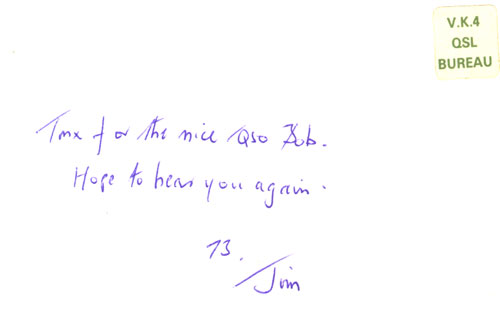 V.K.4
QSL
BUREAU
Tnx for the nice QSO Bob.
Hope to hear you again.
73.
Jim